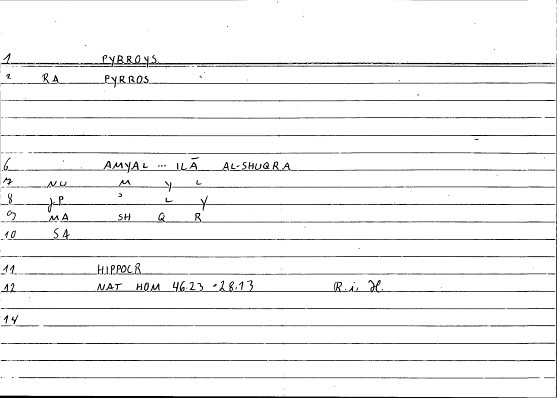 1 PYRROYS
2 RA PYRROS
6 AMYAL ... ILĀ AL-SHUQRA
7 NU M Y L
8 J-P ʾ L Y
9 MA SH Q R
10 SA
11 HIPPOCR
12 NAT HOM 46.23-28.13 R. i. H.
14